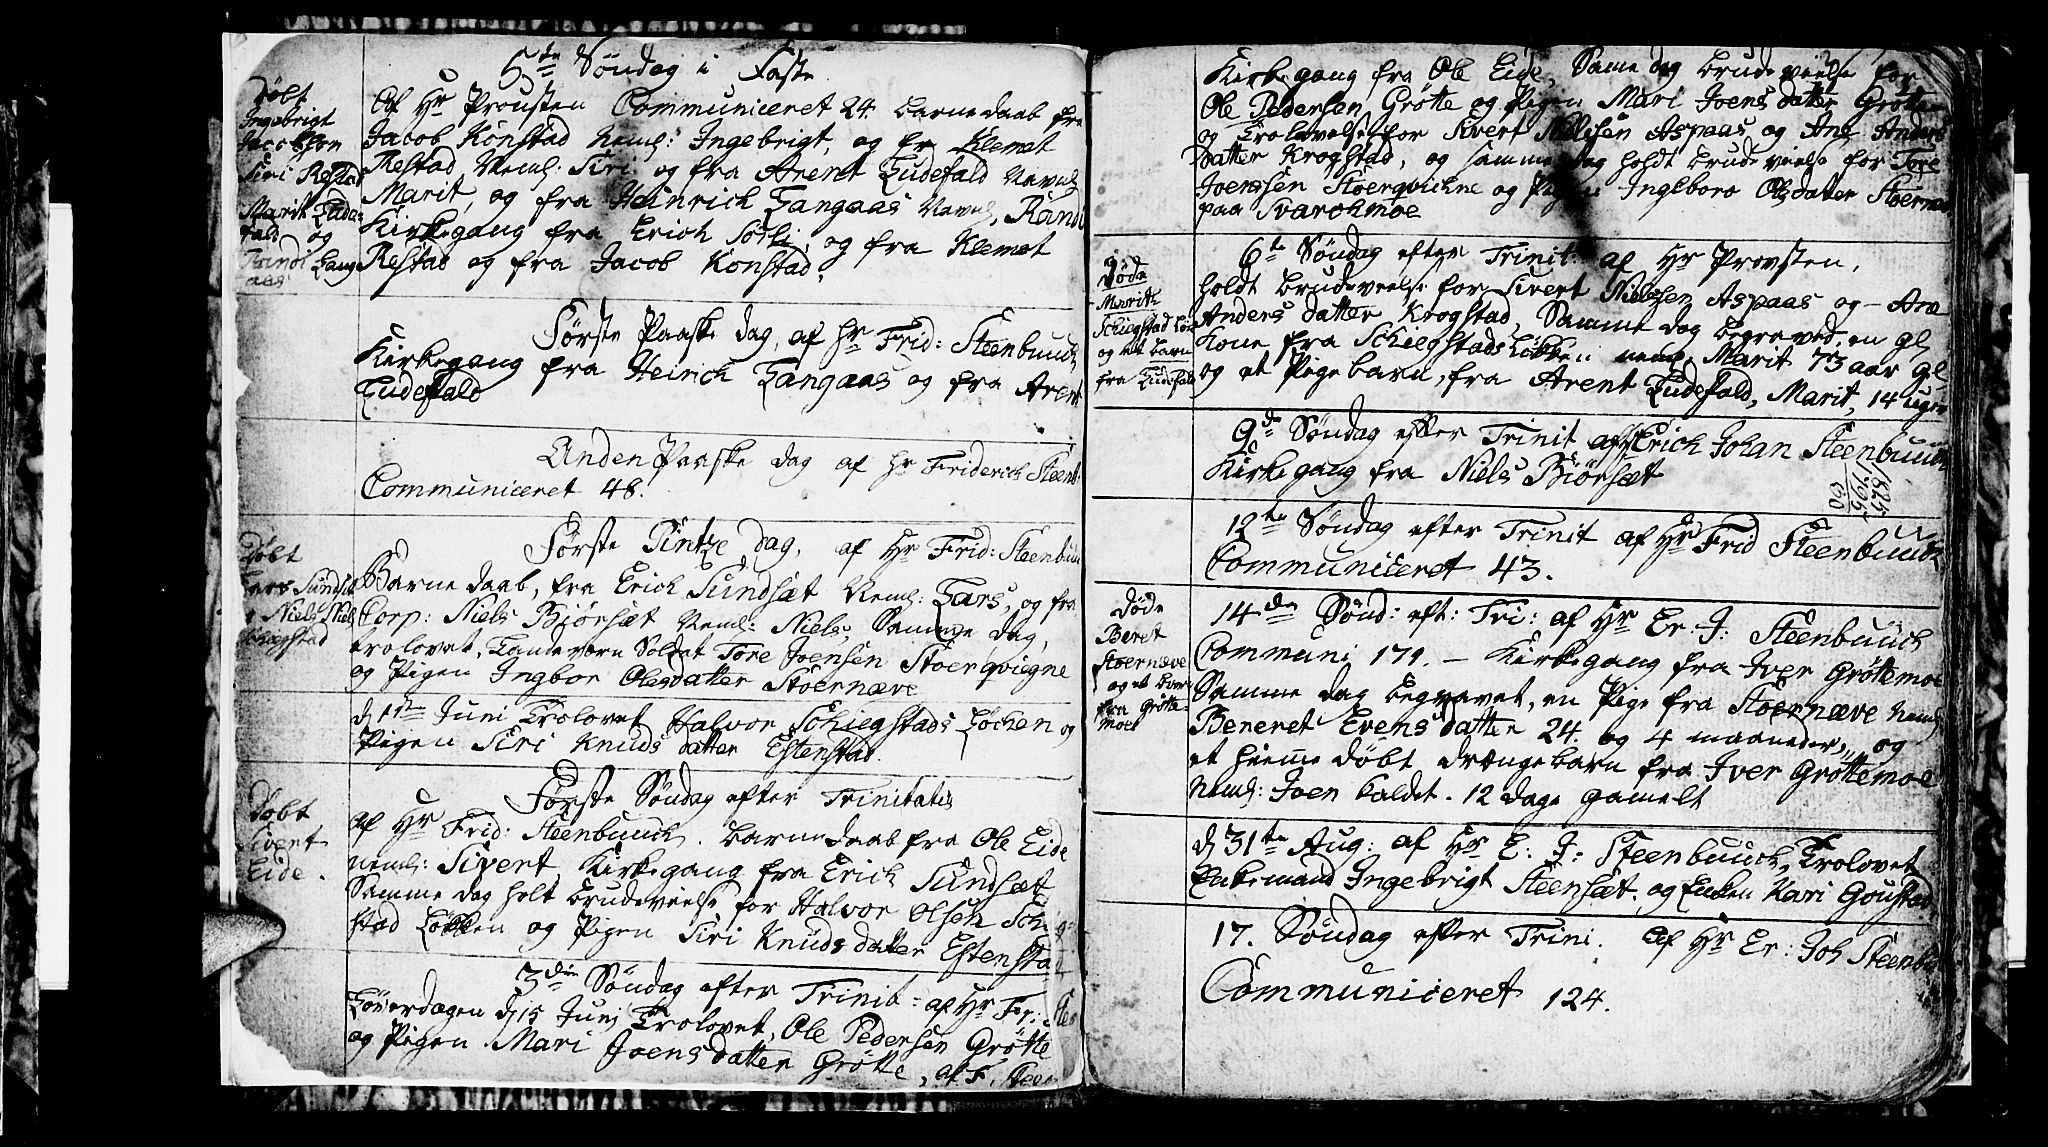 5te Søndag i Faste
Døbt
Ingebrigt
Jacobsen
Siri Restad
Marit Lude-
fald og
Randi Lang
aas
Af Hr Prousten Communiceret 24. barnedaab fra
Jacob Konstad Neml: Ingebrigt, og fr Klemet
Restad Neml: Siri og fra Arent Ludefald Navnl
Marit, og fra Heinrich Langaas Navnl, Randi
Kirkegang fra Erich Sotli, og fra Klemet
Restad og fra Jacob Konstad.
Første Paaske dag, af hr Frid: Steenbuch
Kirkegang fra Heinrich Langaas og fra Arent
Ludefald
Anden Paaske dag af hr Friderich Steenb:
Communiceret 48.
Første Pintze dag, af Hr Frid: Steenbuu
Døbt
Lars Sundset
Niels Niels
Schiegstad
Barnedaab, fra Erich Sundsæt Neml: Lars, og fra
Corp: Niels Biørsæt Neml: Niels, Samme dag,
trolovet, Landeværn Soldat Tore Joensen Stoerqviegne
og Pigen Ingbor Olesdatter Stoernæve
d 1ste Juni Trolovet Halvor Schiegstads Løcken og
Pigen Siri Knuds datter Estenstad.
Første Søndag efter Trinitatis
Døbt
Sivert
Eide.
af Hr Frid: Steenbuuch. barnedaab fra Ole Eide
neml: Sivert, Kirkegang fra Erich Sundsæt
Samme dag holt brudevielse for Halvor Olsen Schieg-
stad Løkken og Pigen Siri Knuds datter Estensta
3die Søndag efter Trinit: af Hr Fr: Stee
Løverdagen d 15 Juni Trolovet, Ole Pedersen Grøtte
og Pigen Mari Joensdatter Grøtte, af F. Steen
Kirkegang fra Ole Eide, Same dag brudevielse for
Ole Pedersen Grøtte og Pigen Mari Joens datter Grøtte
og Trolovelse for Sivert Nielsen Aspaas og Ane Anders
datter Krogstad, og samme dag holdt brudevielse for Tore
Joenssen Stoerqvichne og Pigen Ingeboro Olsdatter Stoernæv
paa Svarchmoe
6te Søndag efter Trinit: af Hr Provsten,
Døde
Marith
Schiegstad Løk
og et barn
fra Ludefald
holdt brudevielse for Sivert Nielssen Aspaas og Ane
Anders datter Krogstad, Samme dag begraved, en gl
Kone fra Schiegstads Løkken neml Marit 73 aar gl
og et Pigebarn, fra Arent Ludefald, Marit, 14 uger
9de Søndag efter Trinit af Hr Erich Johan Steenbuuch
Kirkegang fra Niels Biørsæt
1825
1795
30
12te Søndag efter Trinit af Hr Frid Steenbuuch
Communiceret 43.
Døde
Beret
Stoernæve
og et barn
fra Grøtte-
moet
14de Sønd: eft: Tri: af Hr Er: J: Steenbuuch
Communi 179. - Kirkegang fra Iver Grøttemoe
Samme dag begravet, en Pige fra Stoernæve Neml
Beneret Evens datter 24. og 4 maaneder, og
et hiemme døbt drængebarn fra Iver Grøttemoe
Neml: Joen kaldet. 12 dage gamelt
d 31te Aug: af Hr E: J: Steenbuuch, Trolovet
Enkemand Ingebrigt Steensæt. og Enken Kari Goustad
17. Søndag efter Trini. af Hr Er: Joh Steenbu
Communiceret 124.